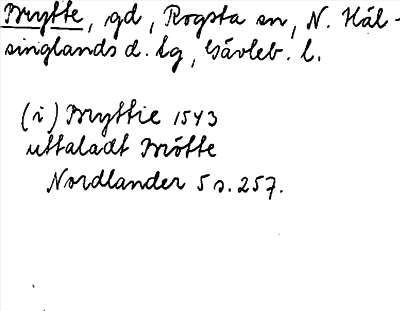 Brytte, gd, Rogsta sn, N. Häl-
singlands d. lg, Gävleb. l.
(i) Bryttie 1543
uttaladt Brötte
Nordlander 5 s. 257.